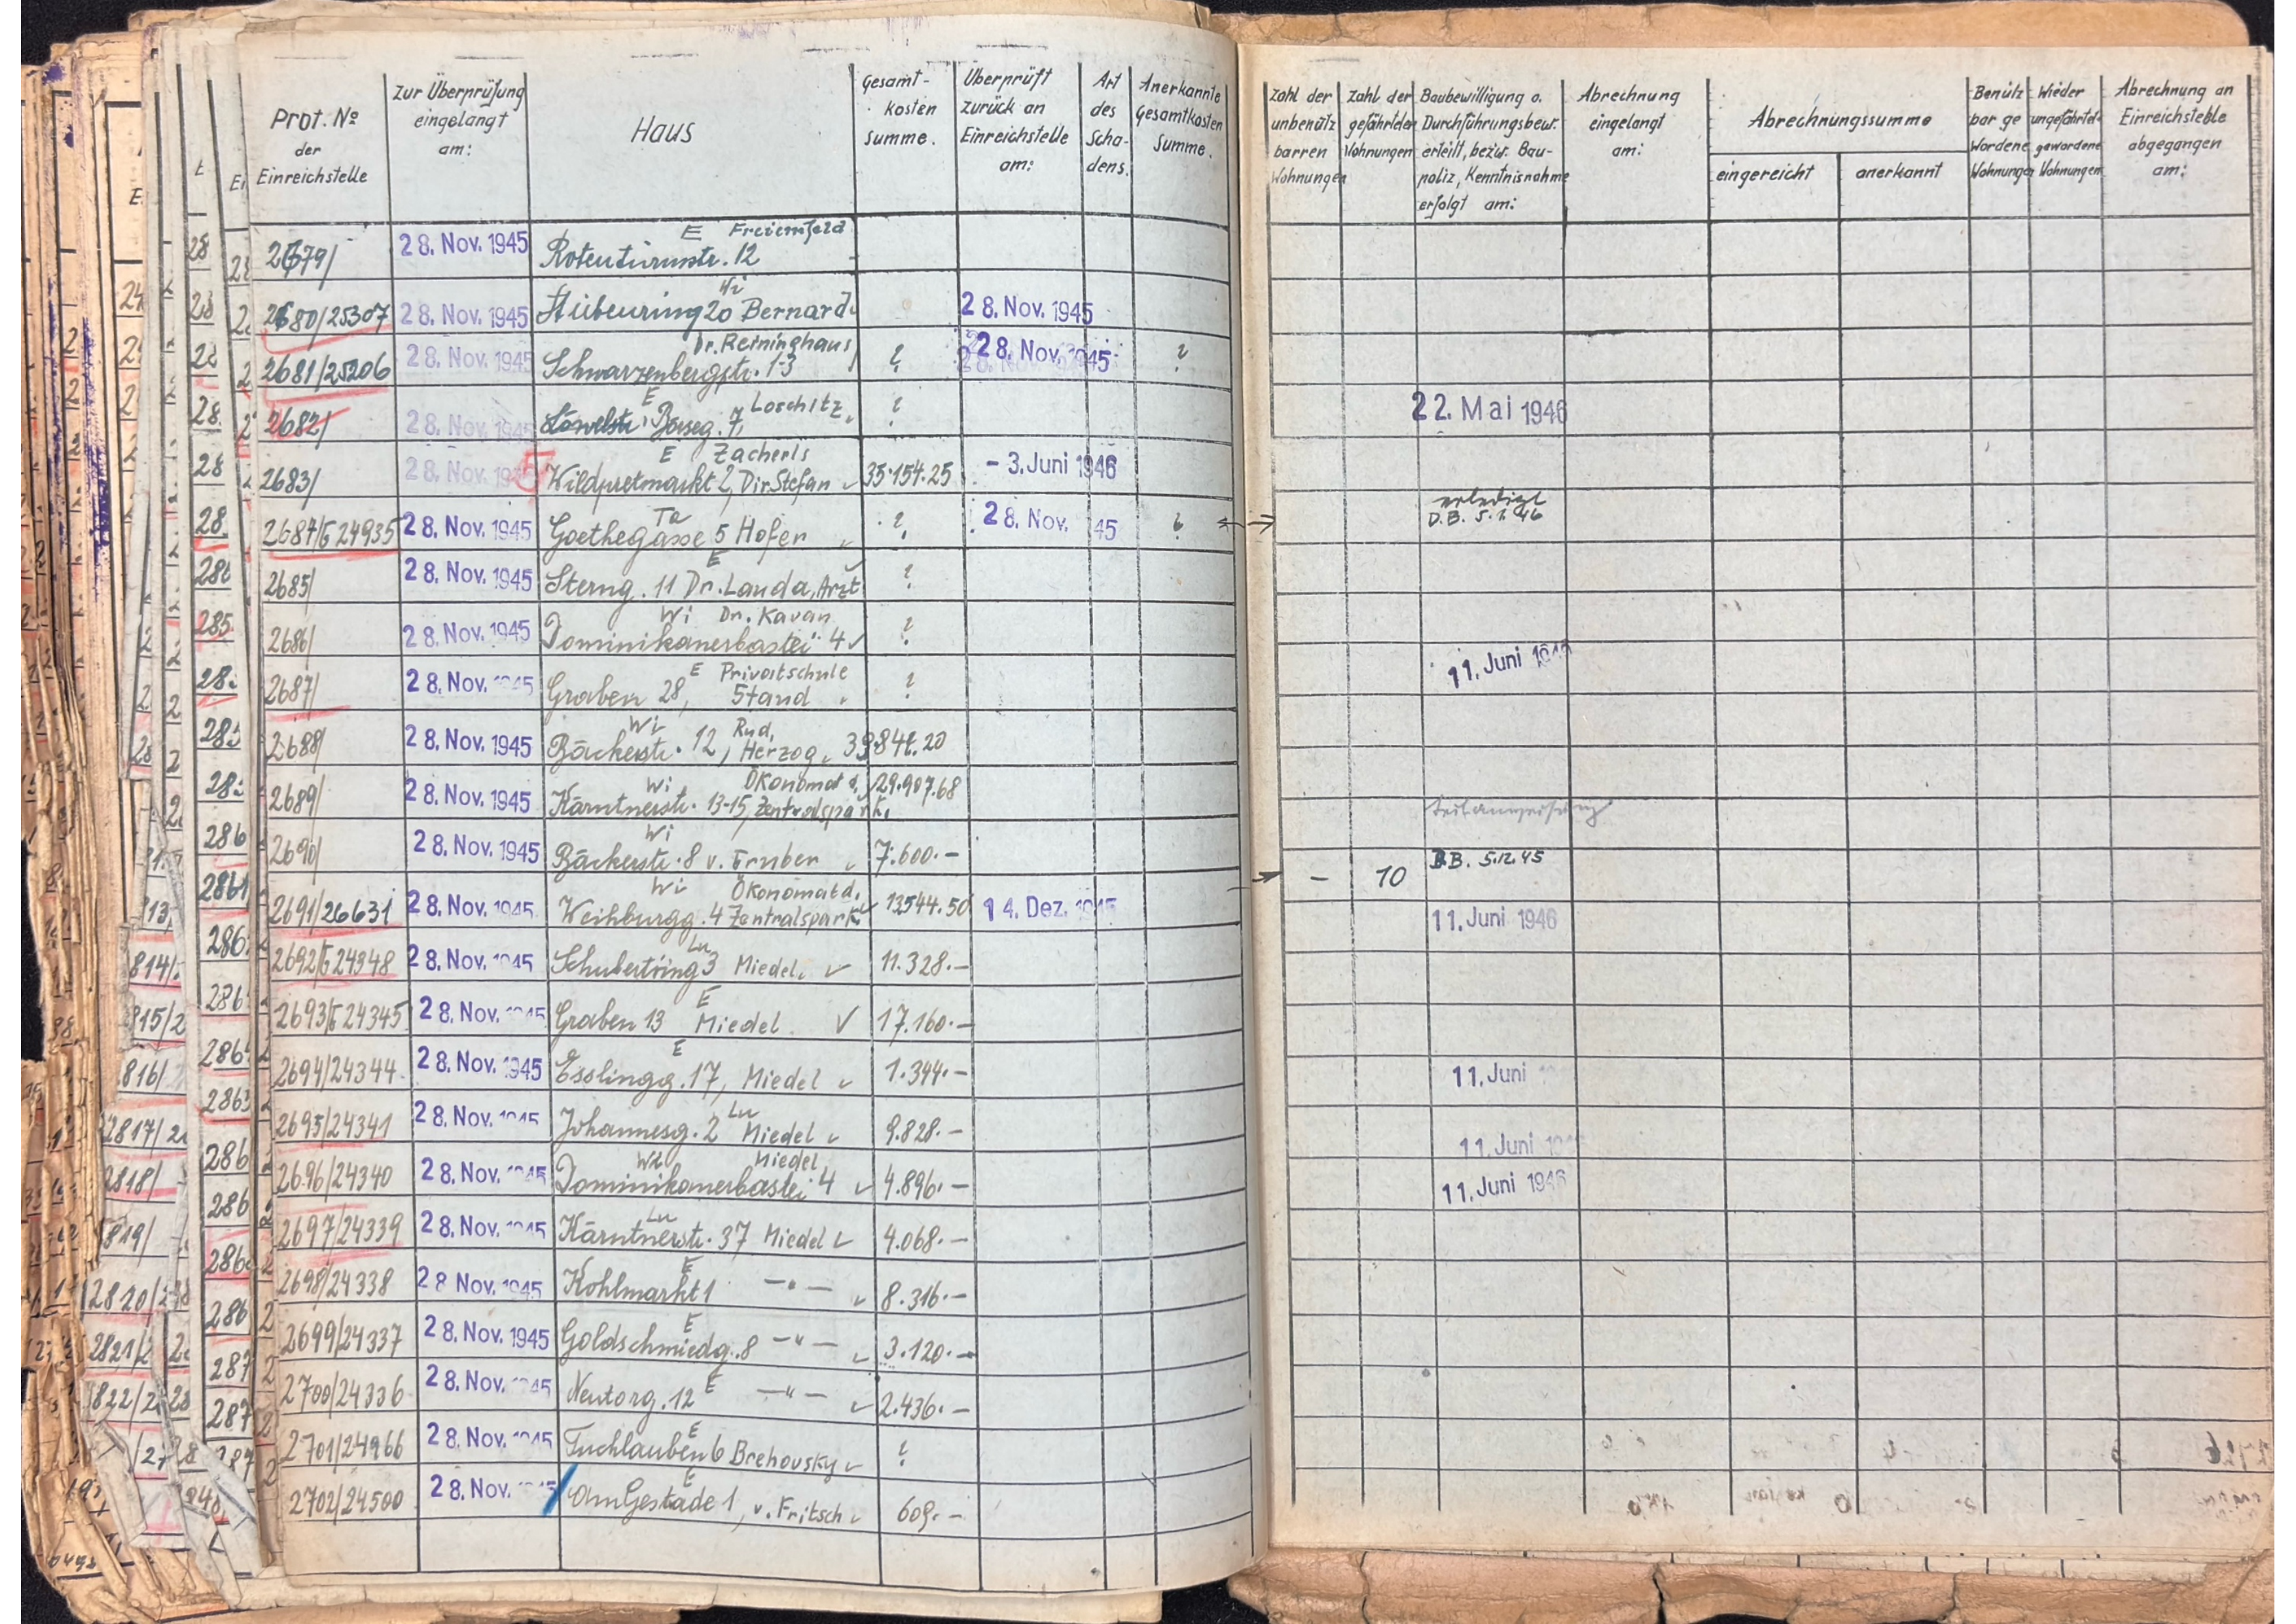 Prot. № der Einreichstelle
Zur Überprüfung eingelangt am:
Haus
Gesamt-kosten Summe.
Überprüft zurück an Einreichstelle am:
Art des Scha-dens.
Anerkannte Gesamtkosten Summe.
Zahl der unbenützbarren Wohnungen
Zahl der gefährdeten Wohnungen
Baubewilligung o. Durchführungsbew. erteilt, bezw. Bau-poliz, Kenntnisnahme erfolgt am:
Abrechnung eingelangt am:
Abrechnungssumme
eingereicht
anerkannt
Benützbar gewordene Wohnungen
Wieder ungefährdet gewordene Wohnungen
Abrechnung an Einreichstelle abgegangen am:
2679/ 28. Nov. 1945 Rotenturmstr. 12 E Freienfeld
2680/25307 28. Nov. 1945 Stubenring 20 Wi Bernard 28. Nov. 1945
2681/25206 28. Nov. 1945 Schwarzenbergstr. 1-3 Dr. Reininghaus ? 28. Nov. 1945 ?
2682/ 28. Nov. 1945 Löwelstr. Börseg. 7, E Loschitz ? 22. Mai 1946
2683/ 28. Nov. 1945 5 Wildpretmarkt 2, E Zacherls Dir. Stefan 35.154.25 - 3. Juni 1946
2687/5 24935 28. Nov. 1945 Goethegasse 5 Ta Hofer ? 28. Nov. 45 ? erledigt D.B. 5.1.46
2685/ 28. Nov. 1945 Sterng. 11 E Dr. Landa, Arzt ?
2686/ 28. Nov. 1945 Dominikanerbastei 4 Wi Dr. Kavan ?
2687/ 28. Nov. 1945 Graben 28, E Privatschule Stand ? 11. Juni 1946
2688/ 28. Nov. 1945 Bäckerstr. 12, Wi Rud. Herzog
2689/ 28. Nov. 1945 Kärntnerstr. 13-15, Wi Ökonomat d. Zentralspark. 29.907.68
2690/ 28. Nov. 1945 Bäckerstr. 8 Wi v. 7.600.-
2691/26631 28. Nov. 1945 Weihburgg. 4 Wi Ökonomat d. Zentralspark. 13544.50 14. Dez. 1945 - 10 D.B. 5.12.45
2692/5 24348 28. Nov. 1945 Schubertring 3 Lu Miedel 11.328.- 11. Juni 1946
2693/5 24345 28. Nov. 1945 Graben 13 E Miedel 17.160.-
2694/24344 28. Nov. 1945 Esslingg. 17, E Miedel 1.344.-
2695/24341 28. Nov. 1945 Johannesg. 2 Lu Miedel 9.828.- 11. Juni
2696/24340 28. Nov. 1945 Dominikanerbastei 4 Wi Miedel 4.896.- 11. Juni
2697/24339 28. Nov. 1945 Kärntnerstr. 37 Lu Miedel 4.068.- 11. Juni 1946
2698/24338 28 Nov. 1945 Kohlmarkt 1 E -"- 8.316.-
2699/24337 28. Nov. 1945 Goldschmiedg. 8 E -"- 3.120.-
2700/24336 28. Nov. 1945 Neutorg. 12 E -"- 2.436.-
2701/24966 28. Nov. 1945 Tuchlauben 6 E Brehovsky ?
2702/24500 28. Nov. 1945 Am Gestade 1, E v. Fritsch 609.-